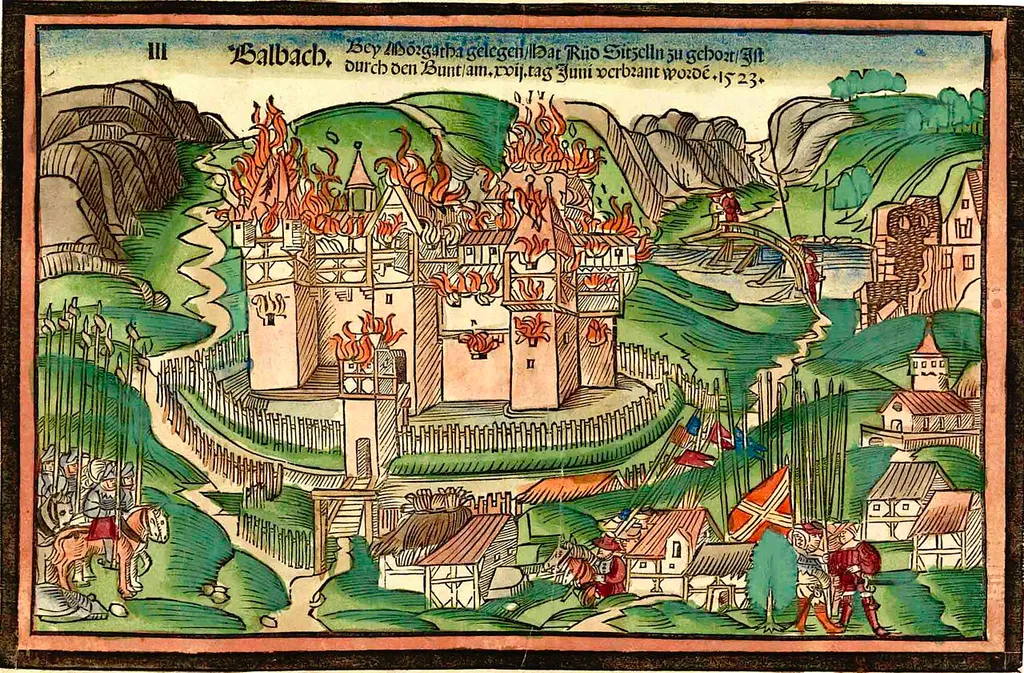 III Balbach. Bey Morgatha gelegen/Hat Rüd Sützelln zu gehort/Ist
durch den Bunt/am.xvij.tag Junij verbrant wordē.1523.